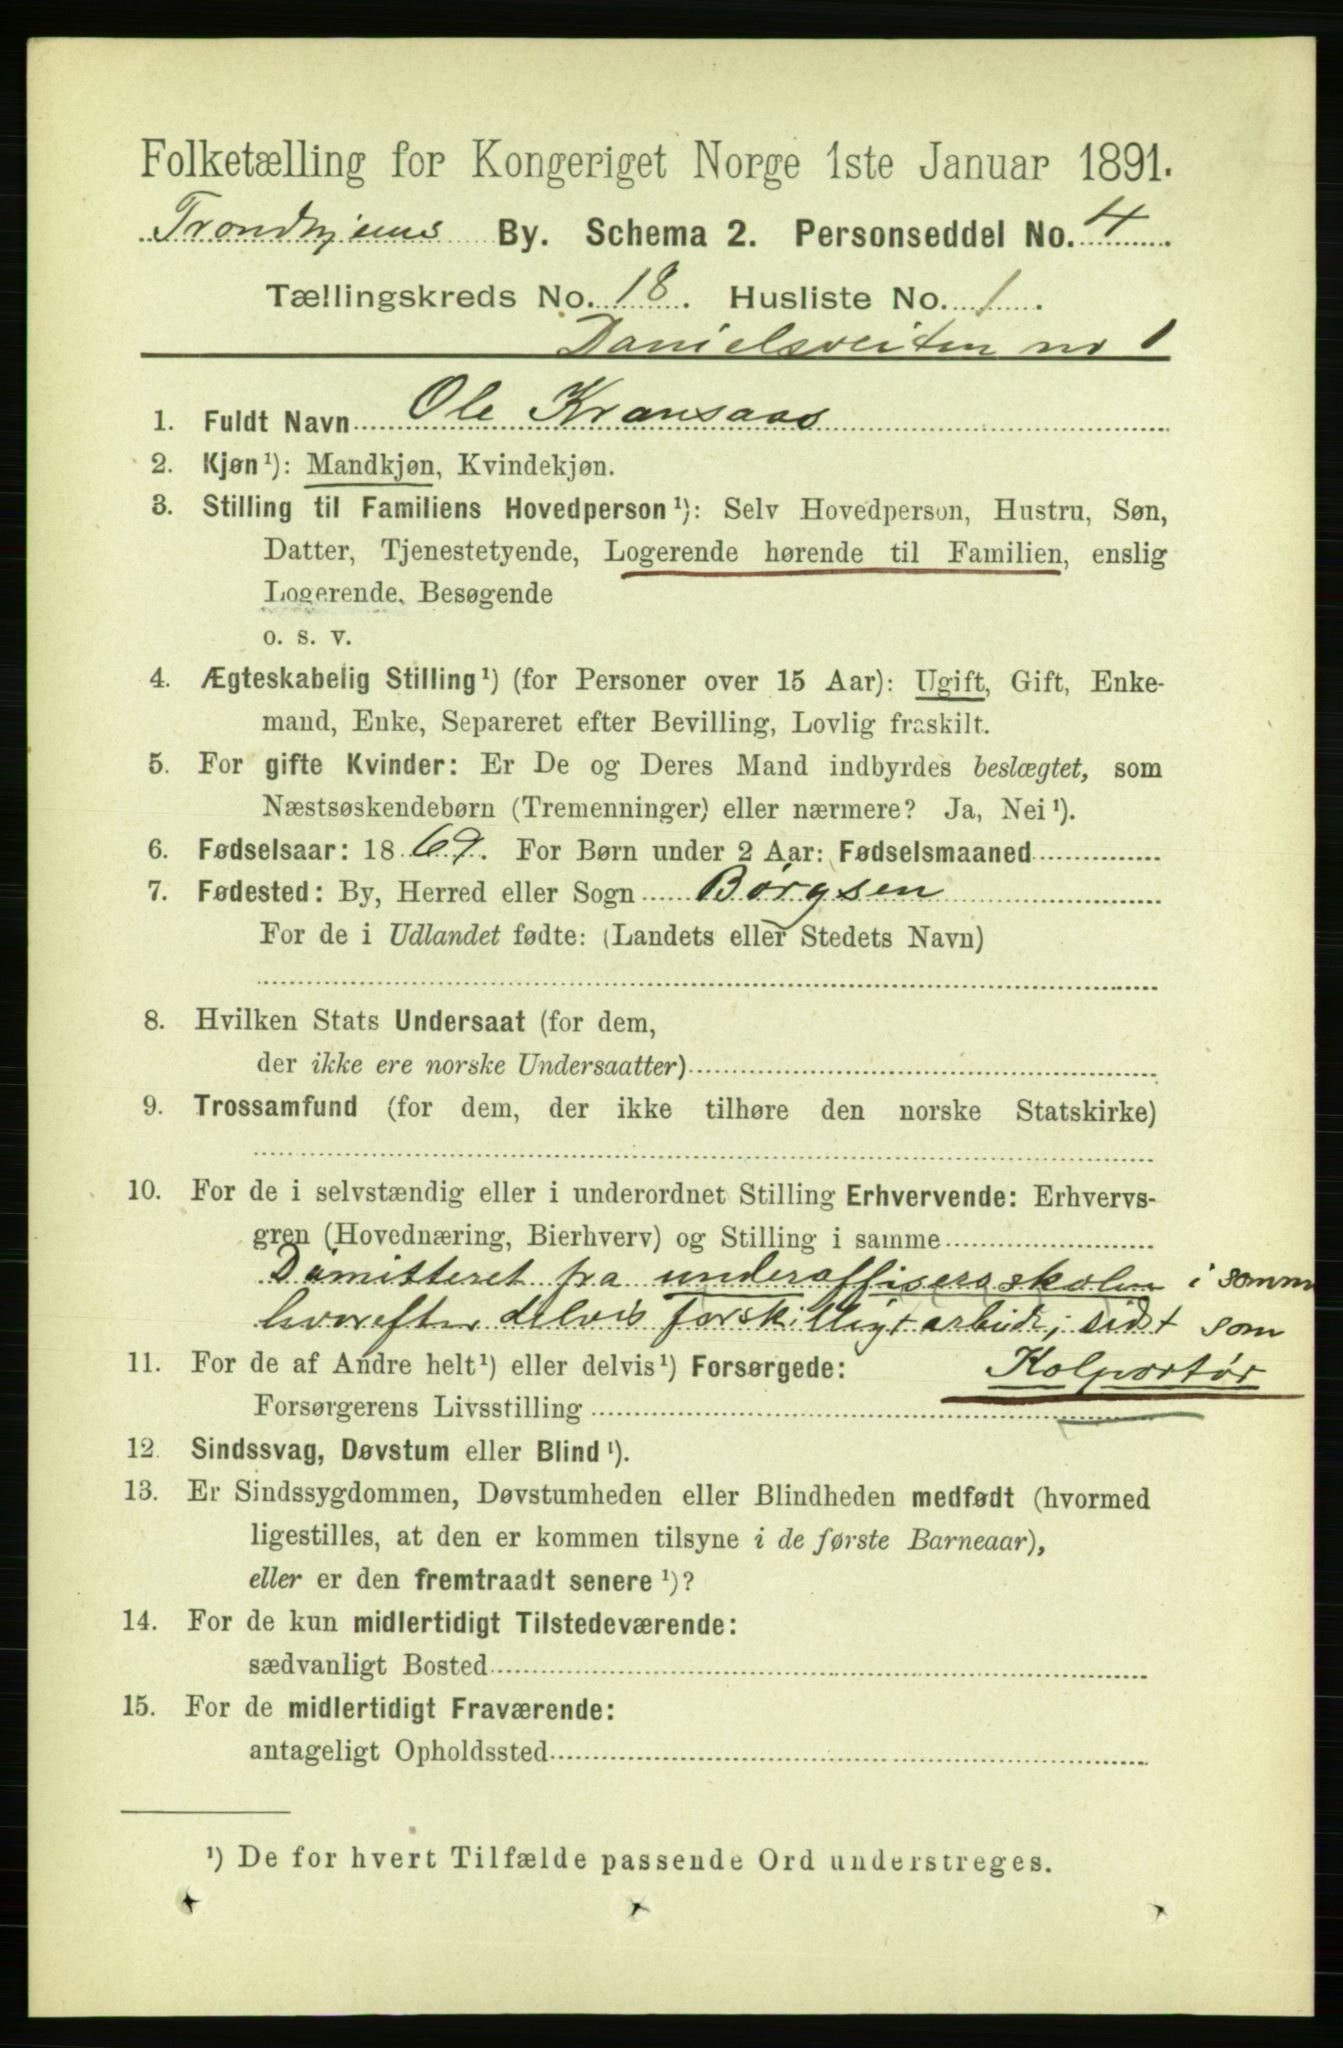 Folketælling for Kongeriget Norge 1ste Januar 1891.
Trondhjems By. Schema 2. Personseddel No. 4
Tællingskreds No. 18. Husliste No. 1.
Danielsveiten no 1
1. Fuldt Navn Ole Kransaas
2. Kjøn¹): Mandkjøn, Kvindekjøn.
3. Stilling til Familiens Hovedperson¹): Selv Hovedperson, Hustru, Søn,
Datter, Tjenestetyende, Logerende hørende til Familien, enslig
Logerende, Besøgende
o. s. v.
4. Ægteskabelig Stilling¹) (for Personer over 15 Aar): Ugift, Gift, Enke-
mand, Enke, Separeret efter Bevilling, Lovlig fraskilt.
5. For gifte Kvinder: Er De og Deres Mand indbyrdes beslægtet, som
Næstsøskendebørn (Tremenninger) eller nærmere? Ja, Nei¹).
6. Fødselsaar: 1869. For Børn under 2 Aar: Fødselsmaaned
7. Fødested: By, Herred eller Sogn Børgsen
For de i Udlandet fødte: (Landets eller Stedets Navn)
8. Hvilken Stats Undersaat (for dem,
der ikke ere norske Undersaatter)
9. Trossamfund (for dem, der ikke tilhøre den norske Statskirke)
10. For de i selvstændig eller i underordnet Stilling Erhvervende: Erhvervs-
gren (Hovednæring, Bierhverv) og Stilling i samme
Dimitteret fra underoffiseraskolen i somm
hvorefter delvis forskilligt arbeide; sidst som
11. For de af Andre helt¹) eller delvis¹) Forsørgede: Kolportør
Forsørgerens Livsstilling
12. Sindssvag, Døvstum eller Blind¹).
13. Er Sindssygdommen, Døvstumheden eller Blindheden medfødt (hvormed
ligestilles, at den er kommen tilsyne i de første Barneaar),
eller er den fremtraadt senere¹)?
14. For de kun midlertidigt Tilstedeværende:
sædvanligt Bosted
15. For de midlertidigt Fraværende:
antageligt Opholdssted
¹) De for hvert Tilfælde passende Ord understreges.